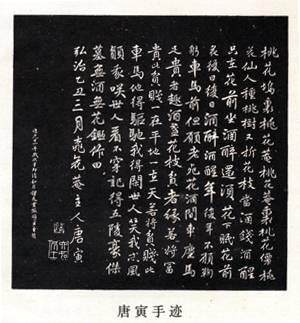 桃花塢裏桃花菴桃花菴裏桃花僊桃
花仙人種桃樹又折花枝當酒錢酒醒
只在花前坐酒醉還須花下眠花前
花後日復日酒醉酒醒年復年不願鞠
躬車馬前但願老死花酒間車塵馬
足貴者趣酒盞花枝貧者緣若將富
貴比貧賤一在平地一在天若將貧賤比
車馬他得驅馳我得閑世人笑我忒風
顛我咲世人看不穿記得五陵豪傑
墓無酒無花鋤作田
弘治乙丑三月桃花菴主人唐寅
唐寅手迹